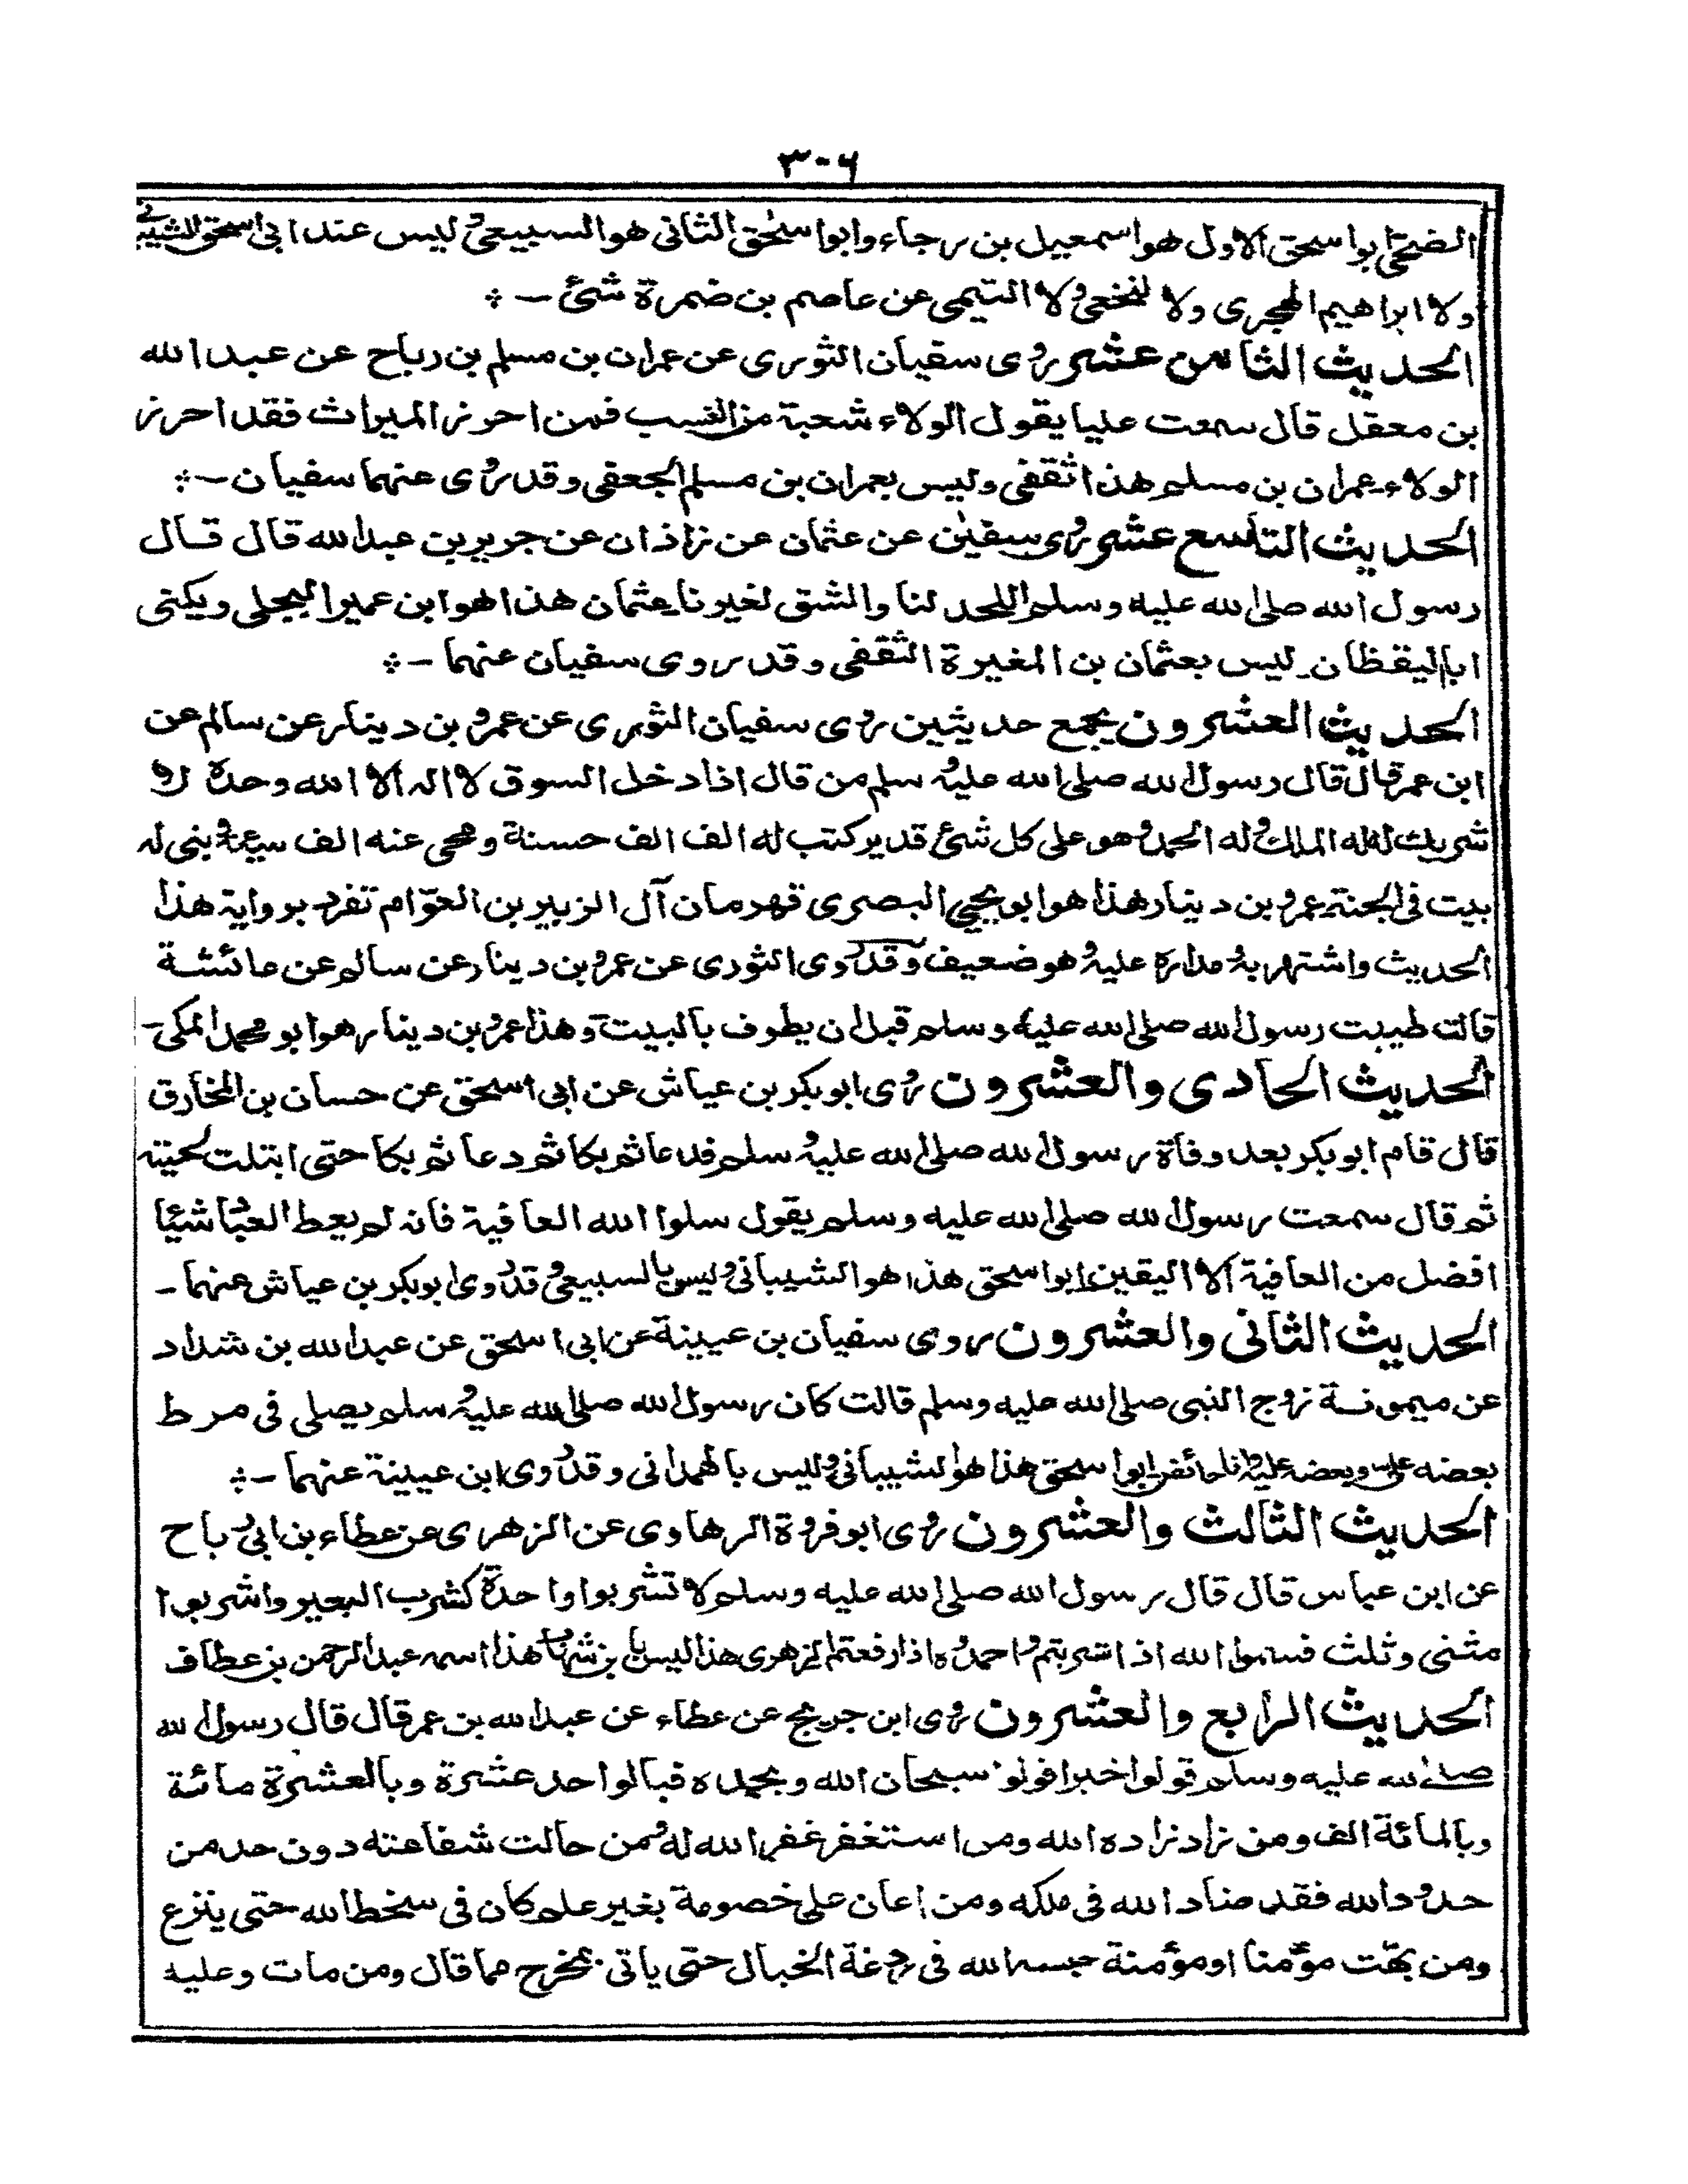 ٣٠٦
الضحى ابواسحق الاول هو اسمعيل بن رجاء وابو اسحٰق الثانى هو السبيعى وليس عند ابى اسحق الشيبانى
ولا ابراهيم الهجرى ولا النخعى ولا التيمى عن عاصم بن ضمرة شئ –
الحديث الثامن عشر روى سفيان الثورى عن عمران بن مسلم بن رباح عن عبدالله
بن معقل قال سمعت عليا يقول الولاء شعبة من النسب فمن احرز الميراث فقد احرز
الولاء عمران بن مسلم هذا ثقفى وليس بعمران بن مسلم الجعفى وقد روى عنهما سفيان –
الحديث التاسع عشر روى سفيٰن عن عثمان عن زاذان عن جرير بن عبدالله قال قال
رسول الله صلى الله عليه وسلم اللحد لنا والشق لغيرنا عثمان هذا هو ابن عمير البجلى ويكنى
ابا اليقظان ليس بعثمان بن المغيرة الثقفى وقد روى سفيان عنهما –
الحديث العشرون يجمع حديثين روى سفيان الثورى عن عمرو بن دينار عن سالم عن
ابن عمر قال قال رسول الله صلى الله عليه وسلم من قال اذا دخل السوق لا اله الا الله وحده لا
شريك له له الملك وله الحمد وهو على كل شئ قدير كتب له الف الف حسنة ومحى عنه الف سيئة وبنى له
بيت فى الجنة عمرو بن دينار هذا هو ابو يحيى البصرى قهرمان آل الزبير بن العوّام تفرد برواية هذا
الحديث واشتهر به و مداره عليه وهو ضعيف وقد روى الثورى عن عمرو بن دينار عن سالم عن عائشة
قالت طيبت رسول الله صلى الله عليه وسلم قبل ان يطوف بالبيت وهذا عمرو بن دينار هو ابو محمد المكى –
الحديث الحادى والعشرون روى ابو بكر بن عياش عن ابى اسحق عن حسان بن المخارق
قال قام ابو بكر بعد وفاة رسول الله صلى الله عليه وسلم فدعا ثم بكا ثم دعا ثم بكا حتى ابتلت لحيته
ثم قال سمعت رسول الله صلى الله عليه وسلم يقول سلوا الله العافية فانه لم يعط العباد شيئا
افضل من العافية الا اليقين ابو اسحق هذا هو الشيبانى وليس بالسبيعى وقد روى ابو بكر بن عياش عنهما –
الحديث الثانى والعشرون روى سفيان بن عيينة عن ابى اسحق عن عبدالله بن شداد
عن ميمونة زوج النبى صلى الله عليه وسلم قالت كان رسول الله صلى الله عليه وسلم يصلى فى مرط
بعضه على وبعضه عليه وانا حائض ابو اسحق هذا هو الشيبانى وليس بالهمدانى وقد روى ابن عيينة عنهما –
الحديث الثالث والعشرون روى ابو فروة الرهاوى عن الزهرى عن عطاء بن ابى رباح
عن ابن عباس قال قال رسول الله صلى الله عليه وسلم لا تشربوا واحدة كشرب البعير واشربوا
مثنى وثلث فسموا الله اذا شربتم واحمدوه اذا رفعتم الزهرى هذا ليس بابن شهاب هذا اسمه عبدالرحمن بن عطاف
الحديث الرابع والعشرون روى ابن جريج عن عطاء عن عبدالله بن عمر قال قال رسول الله
صلى الله عليه وسلم قولوا خيرا قولوا سبحان الله وبحمده فبالواحد عشرة وبالعشرة مائة
وبالمائة الف ومن زاد زاده الله ومن استغفر غفر الله له ومن حالت شفاعته دون حد من
حدود الله فقد ضاد الله فى ملكه ومن اعان على خصومة بغير علم كان فى سخط الله حتى ينزع
ومن بهّت مؤمنا او مؤمنة حبسه الله فى ردغة الخبال حتى ياتى بمخرج مما قال ومن مات وعليه